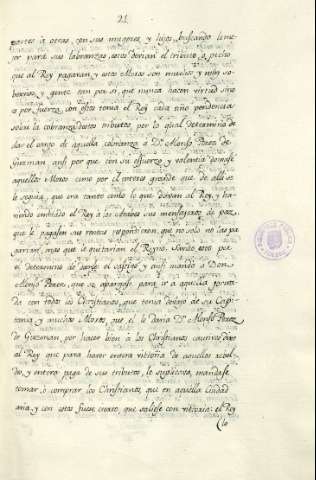 21
partes à otras, con sus mugeres, y hijos, buscando lo me-
jor para sus labranzas, estos devian el tributo, ò pecho
que al Rey pagavan, y estos Moros son muchos, y muy so-
bervios, y gente con poi si, que nunca hacen virtud sino
es por fuerza, con estos tenia el Rey cada año pendencia
sobre la cobranza destos tributos, por lo qual determinó de
dar el cargo de aquella cobranza à Dn. Alonso Perez de
Guzman, ansi por que con su esfuerzo, y valentia domase
aquellos Moros, como por el interes grande que de alli se
le seguia, que era tanto como lo que davan al Rey, y ha-
viendo embiado el Rey à los Alarves sus mensageros de paz,
que le pagasen sus rentas, respondieron, que no solo no las pa-
garian, mas que le quitarian el Reyno. Savido esto por
el determinó de darles el castigo, y ansi mandó à Don
Alonso Perez, que se aparejase para ir à aquella jornada
con todos los Christianos, que tenia debajo de su Capi-
tania, y muchos Moros, que el le daria. Dn. Alonso Perez
de Guzman, por hacer bien à los Christianos cautivos dixo
al Rey que para haver entera vitoria de aquellos rebel-
des, y entera paga de sus tributos, le suplicava, mandase
tomar, ò comprar los Christianos, que en aquella ciudad
avia, y con estos fuese cierto, que saldria con vitoria: el Rey